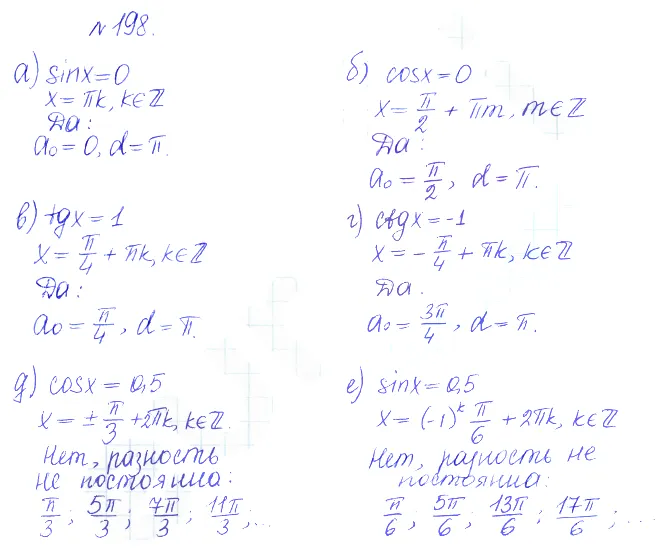 №198.
а) sinx=0
x=πk, k∈ℤ
Да:
a₀=0, d=π.
б) cosx=0
x=π/2+πm, m∈ℤ
Да:
a₀=π/2, d=π.
в) tgx=1
x=π/4+πk, k∈ℤ
Да:
a₀=π/4, d=π.
г) ctgx=-1
x=-π/4+πk, k∈ℤ
Да.
a₀=3π/4, d=π.
д) cosx=0,5
x=±π/3+2πk, k∈ℤ.
Нет, разность
не постоянна:
π/3; 5π/3; 7π/3; 11π/3;...
е) sinx=0,5
x=(-1)ᵏπ/6+2πk, k∈ℤ
Нет, разность не
постоянна:
π/6; 5π/6; 13π/6; 17π/6;...